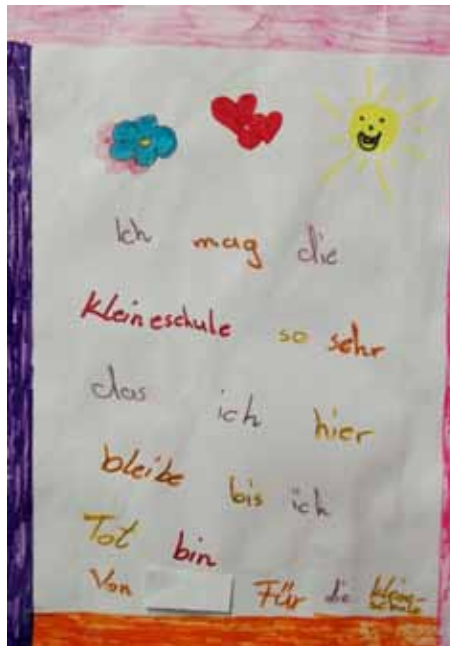 Ich mag die
kleineschule so sehr
das ich hier
bleibe bis ich
Tot bin
Von Für die kleine-
schule